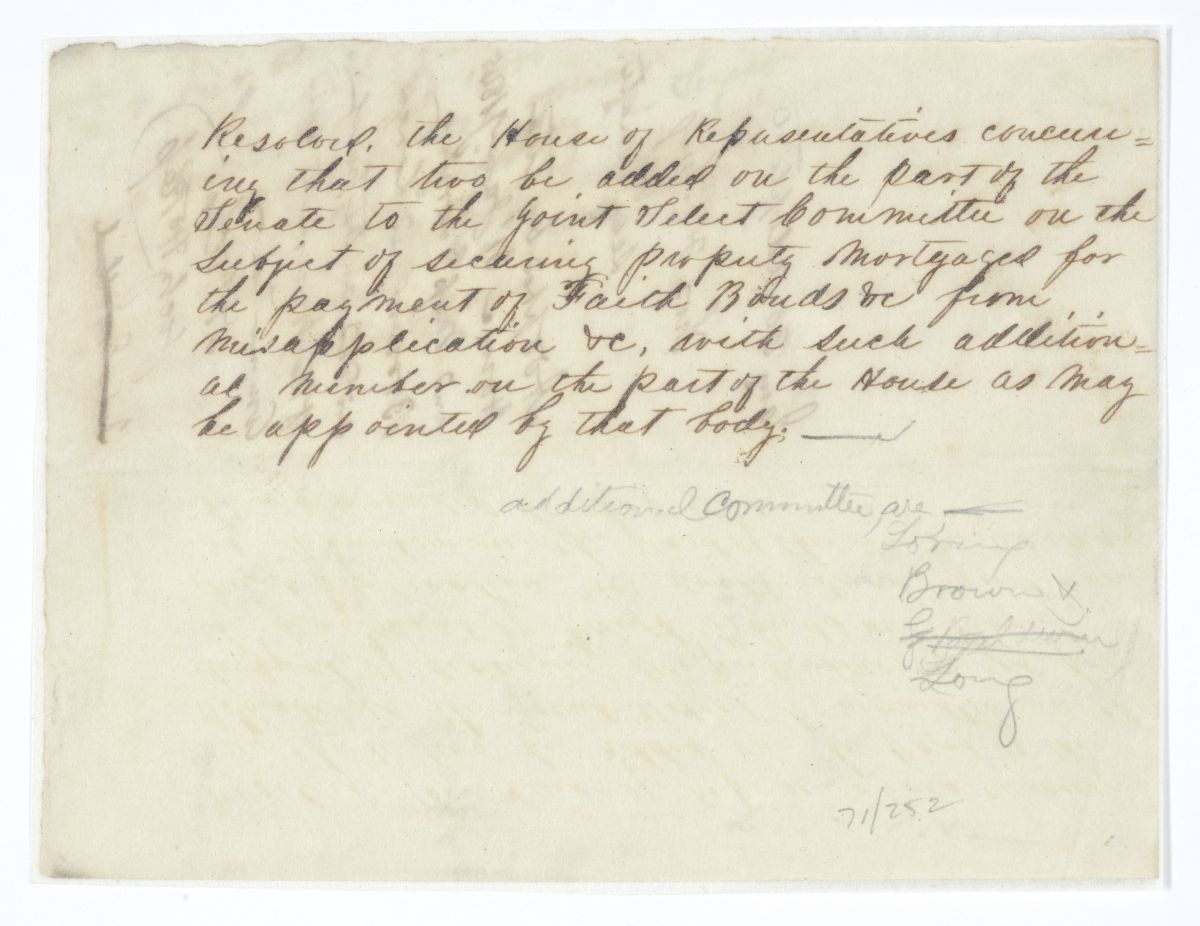 Resolved, the House of Representatives concurr=
ing that two be added on the part of the
Senate to the Joint Select Committee on the
Subject of securing property Mortgaged for
the payment of Faith Bonds &c from
Misapplication &c, with such addition=
al number on the part of the House as may
be appointed by that body.
additional Committee, are
Loring
Brown &
Long
71/252